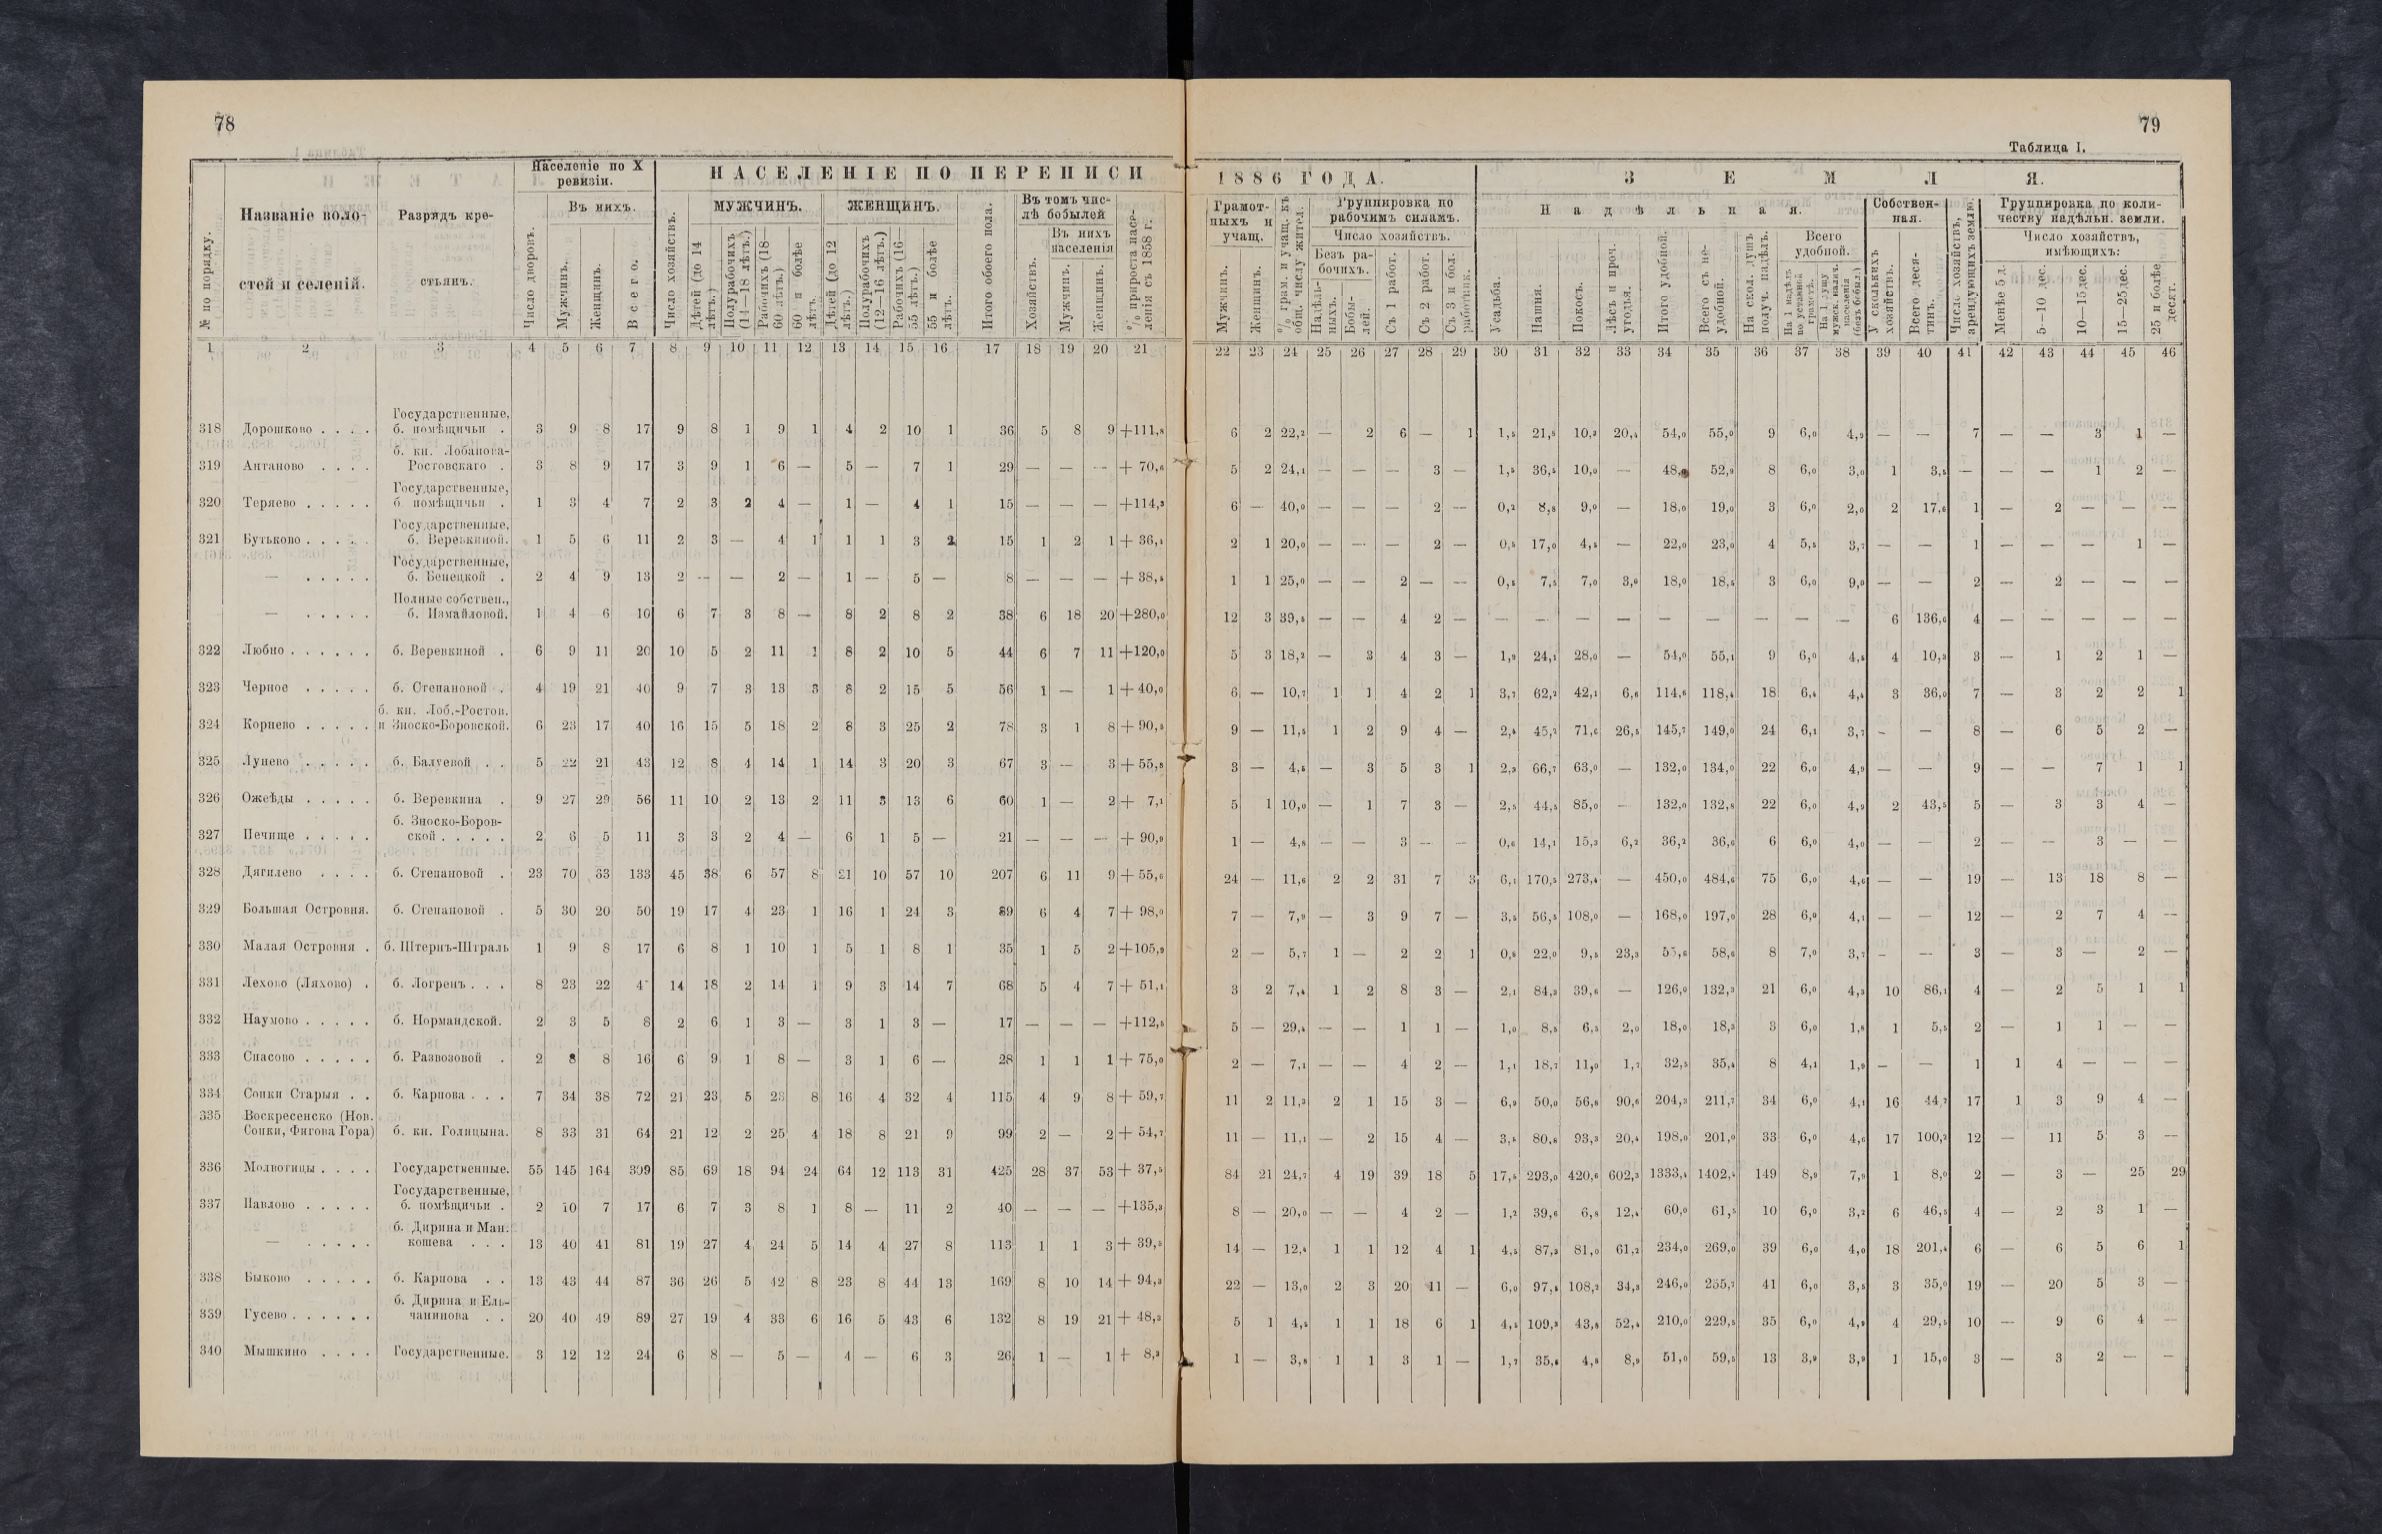 78
Населеніе по X
ревизіи.
НАСЕЛЕНІЕ ПО ПЕРЕПИСИ
Названіе воло-
стей и селеній.
Разрядъ кре-
стьянъ.
Въ нихъ.
МУЖЧИНЪ.
ЖЕНЩИНЪ.
Въ томъ чис-
лѣ бобылей
Въ нихъ
населенія
№ по порядку.
Число дворовъ.
Мужчинъ.
Женщинъ.
Всего.
Число хозяйствъ.
Дѣтей (до 14 лѣтъ.)
Полурабочихъ (14—18 лѣтъ.)
Рабочихъ (18—60 лѣтъ.)
60 и болѣе лѣтъ.
Дѣтей (до 12 лѣтъ.)
Полурабочихъ (12—16 лѣтъ.)
Рабочихъ (16—55 лѣтъ.)
55 и болѣе лѣтъ.
Итого обоего пола.
Хозяйствъ.
Мужчинъ.
Женщинъ.
% прироста насе-ленія съ 1858 г.
1 2 3 4 5 6 7 8 9 10 11 12 13 14 15 16 17 18 19 20 21
Государственные,
318 Дорошково . . . . б. помѣщичьи . 3 9 8 17 9 8 1 9 1 4 2 10 1 36 5 8 9 +111,8
б. кн. Лобанова-
319 Антаново . . . . Ростовскаго . 3 8 9 17 3 9 1 6 — 5 — 7 1 29 — — — + 70,6
Государственные,
320 Теряево . . . . . б. помѣщичьи . 1 3 4 7 2 3 2 4 — 1 — 4 1 15 — — — +114,3
Государственные,
321 Бутьково . . . . . б. Веревкиной. 1 5 6 11 2 3 — 4 1 1 1 3 2 15 1 2 1 + 36,4
Государственные,
— . . . . . б. Бенецкой . 2 4 9 13 2 — — 2 — 1 — 5 — 8 — — — + 38,5
Полные собствен.,
— . . . . . б. Измайловой. 1 4 6 10 6 7 3 8 — 8 2 8 2 38 6 18 20 +280,0
322 Любно . . . . . . б. Веревкиной . 6 9 11 20 10 5 2 11 1 8 2 10 5 44 6 7 11 +120,0
323 Черное . . . . . б. Степановой . 4 19 21 40 9 7 3 13 3 8 2 15 5 56 1 — 1 + 40,0
б. кн. Лоб.-Ростов.
324 Корнево . . . . . и Зноско-Боровской. 6 23 17 40 16 15 5 18 2 8 3 25 2 78 3 1 8 + 90,5
325 Лунево . . . . . б. Балуевой . . 5 22 21 43 12 8 4 14 1 14 3 20 3 67 3 — 3 + 55,8
326 Ожеѣды . . . . . б. Веревкина . 9 27 29 56 11 10 2 13 2 11 3 13 6 60 1 — 2 + 7,1
б. Зноско-Боров-
327 Печище . . . . . ской . . . . . 2 6 5 11 3 3 2 4 — 6 1 5 — 21 — — — + 90,9
328 Дягилево . . . . б. Степановой . 23 70 63 133 45 38 6 57 8 21 10 57 10 207 6 11 9 + 55,6
329 Большая Островня. б. Степановой . 5 30 20 50 19 17 4 23 1 16 1 24 3 89 6 4 7 + 98,0
330 Малая Островня . б. Штернъ-Штраль 1 9 8 17 6 8 1 10 1 5 1 8 1 35 1 5 2 +105,9
331 Лехово (Ляхово) . б. Логренъ . . . 8 23 22 14 18 2 14 1 9 3 14 7 68 5 4 7 + 51,1
332 Наумово . . . . . б. Нормандской. 2 3 5 8 2 6 1 3 — 3 1 3 — 17 — — — +112,5
333 Спасово . . . . . б. Развозовой . 2 8 8 16 6 9 1 8 — 3 1 6 — 28 1 1 1 + 75,0
334 Сопки Старыя . . б. Карпова . . . 7 34 38 72 21 23 5 23 8 16 4 32 4 115 4 9 8 + 59,7
335 Воскресенско (Нов.
Сопки, Фигова Гора) б. кн. Голицына. 8 33 31 64 21 12 2 25 4 18 8 21 9 99 2 — 2 + 54,7
336 Молвотицы . . . . Государственные. 55 145 164 309 85 69 18 94 24 64 12 113 31 425 28 37 53 + 37,5
Государственные,
337 Павлово . . . . . б. помѣщичьи . 2 10 7 17 6 7 3 8 1 8 — 11 2 40 — — — +135,3
б. Дирина и Ман:
— . . . . . кошева . . . 13 40 41 81 19 27 4 24 5 14 4 27 8 113 1 1 3 + 39,5
338 Быково . . . . . б. Карпова . . 13 43 44 87 36 26 5 42 8 23 8 44 13 169 8 10 14 + 94,3
б. Дирина и Ель-
339 Гусево . . . . . . чанинова . . 20 40 49 89 27 19 4 33 6 16 5 43 6 132 8 19 21 + 48,3
340 Мышкино . . . . Государственные. 3 12 12 24 6 8 — 5 — 4 — 6 3 26 1 — 1 + 8,3
79
Таблица I.
1886 ГОДА.
ЗЕМЛЯ.
Грамот-
ныхъ и
учащ.
% грам. и учащ. къ общ. числу жител.
Группировка по
рабочимъ силамъ.
Число хозяйствъ.
Безъ ра-
бочихъ.
Надѣльная.
Всего
удобной.
Собствен-
ная.
Число хозяйствъ, арендующихъ землю.
Группировка по коли-
честву надѣльн. земли.
Число хозяйствъ,
имѣющихъ:
Мужчинъ.
Женщинъ.
Надѣль-ныхъ.
Бобы-лей.
Съ 1 работ.
Съ 2 работ.
Съ 3 и бол. работник.
Усадьба.
Пашня.
Покосъ.
Лѣсъ и проч. угодья.
Итого удобной.
Всего съ не-удобной.
На скол. душъ получ. надѣлъ.
На 1 надѣлъ по уставной грамотѣ.
На 1 душу мужск. налич. населенія (безъ бобыл.)
У сколькихъ хозяйствъ.
Всего деся-тинъ.
Менѣе 5 д.
5—10 дес.
10—15 дес.
15—25 дес.
25 и болѣе десят.
22 23 24 25 26 27 28 29 30 31 32 33 34 35 36 37 38 39 40 41 42 43 44 45 46
6 2 22,2 — 2 6 — 1 1,5 21,5 10,2 20,4 54,0 55,0 9 6,0 4,9 — — 7 — — 3 1 —
5 2 24,1 — — — 3 — 1,5 36,5 10,0 — 48,0 52,9 8 6,0 3,0 1 3,5 — — — 1 2 —
6 — 40,0 — — — 2 — 0,2 8,8 9,0 — 18,0 19,0 3 6,0 2,0 2 17,6 1 — 2 — — —
2 1 20,0 — — — 2 — 0,5 17,0 4,5 — 22,0 23,0 4 5,5 3,7 — — 1 — — — 1 —
1 1 25,0 — — 2 — — 0,5 7,5 7,0 3,0 18,0 18,5 3 6,0 9,0 — — 2 — 2 — — —
12 3 39,5 — — 4 2 — — — — — — — — — — 6 136,6 4 — — — — —
5 3 18,2 — 3 4 3 — 1,9 24,1 28,0 — 54,0 55,1 9 6,0 4,5 4 10,3 3 — 1 2 1 —
6 — 10,7 1 1 4 2 1 3,7 62,2 42,1 6,6 114,6 118,4 18 6,4 4,4 3 36,0 7 — 3 2 2 1
9 — 11,5 1 2 9 4 — 2,4 45,2 71,6 26,5 145,7 149,0 24 6,1 3,7 — — 8 — 6 5 2 —
3 — 4,5 — 3 5 3 1 2,3 66,7 63,0 — 132,0 134,0 22 6,0 4,9 — — 9 — — 7 1 1
5 1 10,0 — 1 7 3 — 2,5 44,5 85,0 — 132,0 132,8 22 6,0 4,9 2 43,5 5 — 3 3 4 —
1 — 4,8 — — 3 — — 0,6 14,1 15,3 6,2 36,2 36,6 6 6,0 4,0 — — 2 — — 3 — —
24 — 11,6 2 2 31 7 3 6,1 170,5 273,4 — 450,0 484,6 75 6,0 4,6 — — 19 — 13 18 8 —
7 — 7,9 — 3 9 7 — 3,5 56,5 108,0 — 168,0 197,0 28 6,0 4,1 — — 12 — 2 7 4 —
2 — 5,7 1 — 2 2 1 0,8 22,0 9,5 23,3 55,6 58,6 8 7,0 3,7 — — 3 — 3 — 2 —
3 2 7,4 1 2 8 3 — 2,1 84,3 39,6 — 126,0 132,3 21 6,0 4,3 10 86,1 4 — 2 5 1 1
5 — 29,4 — — 1 1 — 1,0 8,5 6,5 2,0 18,0 18,3 3 6,0 1,8 1 5,5 2 — 1 1 — —
2 — 7,1 — — 4 2 — 1,1 18,7 11,0 1,7 32,5 35,4 8 4,1 1,9 — — 1 1 4 — — —
11 2 11,3 2 1 15 3 — 6,9 50,0 56,8 90,6 204,3 211,7 34 6,0 4,1 16 44,7 17 1 3 9 4 —
11 — 11,1 — 2 15 4 — 3,5 80,8 93,3 20,4 198,0 201,0 33 6,0 4,6 17 100,2 12 — 11 5 3 —
84 21 24,7 4 19 39 18 5 17,5 293,0 420,6 602,3 1333,4 1402,4 149 8,9 7,9 1 8,0 2 — 3 — 25 29
8 — 20,0 — — 4 2 — 1,2 39,6 6,8 12,4 60,0 61,5 10 6,0 3,2 6 46,5 4 — 2 3 1 —
14 — 12,4 1 1 12 4 1 4,5 87,3 81,0 61,2 234,0 269,0 39 6,0 4,0 18 201,4 6 — 6 5 6 1
22 — 13,0 2 3 20 11 — 6,0 97,5 108,2 34,3 246,0 255,7 41 6,0 3,5 3 35,0 19 — 20 5 3 —
5 1 4,5 1 1 18 6 1 4,5 109,3 43,8 52,4 210,0 229,5 35 6,0 4,9 4 29,5 10 — 9 6 4 —
1 — 3,8 1 1 3 1 — 1,7 35,6 4,8 8,9 51,0 59,5 13 3,9 3,9 1 15,0 3 — 3 2 — —